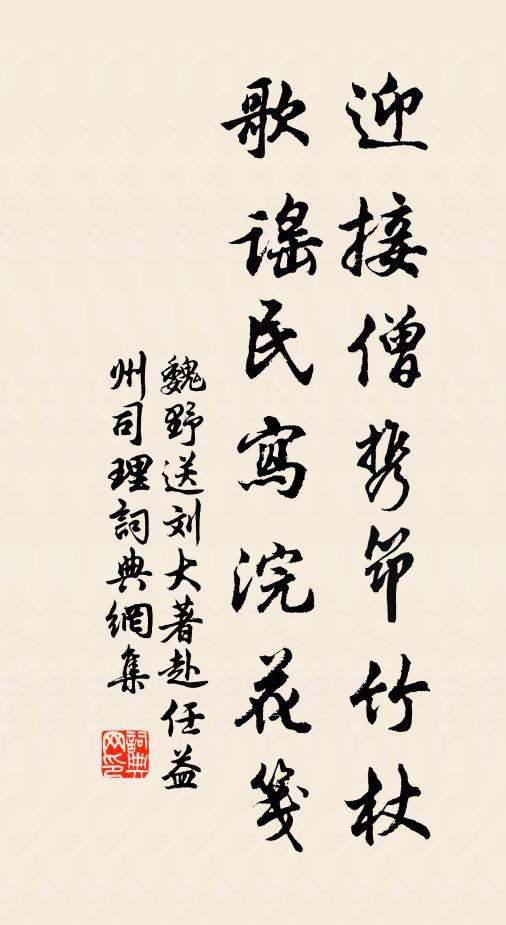 迎接僧携笻竹杖
歌谣民寫浣花箋
魏野送刘大著赴任益
州司理詞典網集
詞典网印